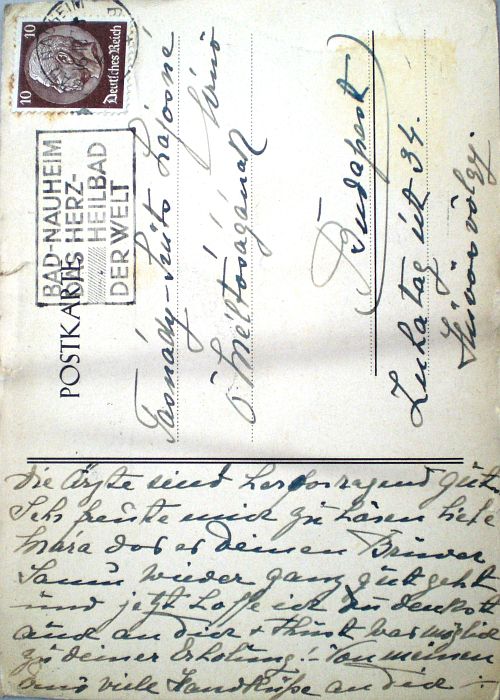 10 10
Deutsches Reich
BAD-NAUHEIM
DAS HERZ-
HEILBAD
DER WELT
POSTKARTE
Tasnády-Szüts Lajosné
Ő Méltóságának
Budapest
Zuhatag út 34.
Die Ärzte sind herforragend gut.
Sehr freute mich zu hören liebe
Mára das es Deinen Bruder
wieder ganz gutt geht
und jetzt hoffe ich du denkst
auch an dich + thust was möglich
zu deiner Erholung! - Von meinen
aus viele Handküße an dich -